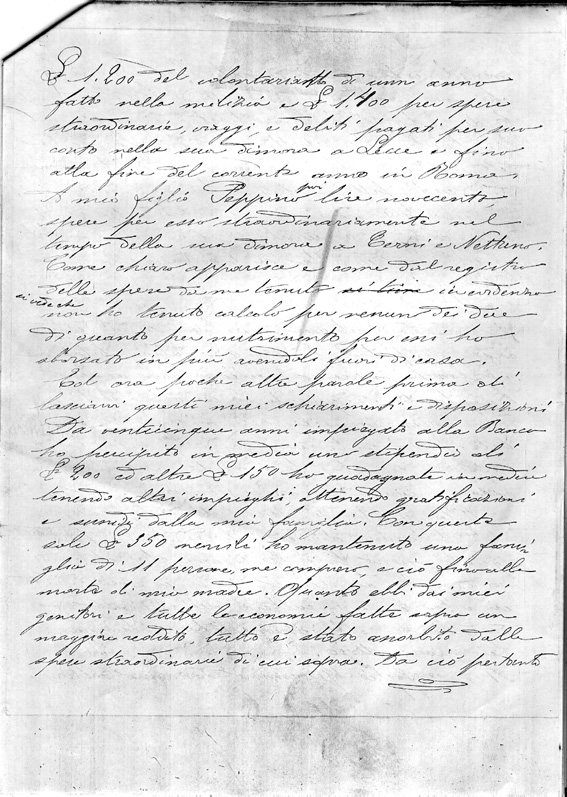 £ 1.200 del volontariato di un anno
fatto nella milizia e £ 1.400 per spese
straordinarie, viaggi, e debiti pagati per suo
conto nella sua dimora a Lecce e fino
alla fine del corrente anno in Roma.
A mio figlio Peppino poi lire novecento
spese per esso straordinariamente nel
tempo della sua dimora a Terni e Nettuno.
Come chiaro apparisce e come dal registro
delle spese da me tenuto in evidenza
si vede che
non ho tenuto calcolo per nenun dei due
di quanto per nutrimento per essi ho
sborsato in più avendoli fuori di casa.
Ed ora poche altre parole prima di
lasciarvi questi miei schiarimenti e disposizioni
Da venticinque anni impiegato alla Banca
ho percepito in media uno stipendio di
£ 200 ed altre £ 150 ho guadagnate in media
tenendo altri impieghi ottenendo gratificazioni
e sussidi dalla mia famiglia. Con queste
sole £ 350 mensili ho mantenuto una fami-
glia di 11 persone, me compreso, e ciò fino alla
morte di mia madre. Quanto ebbi dai miei
genitori e tutte le economie fatte sopra un
maggiore reddito, tutto è stato assorbito dalle
spese straordinarie di cui sopra. Da ciò pertanto